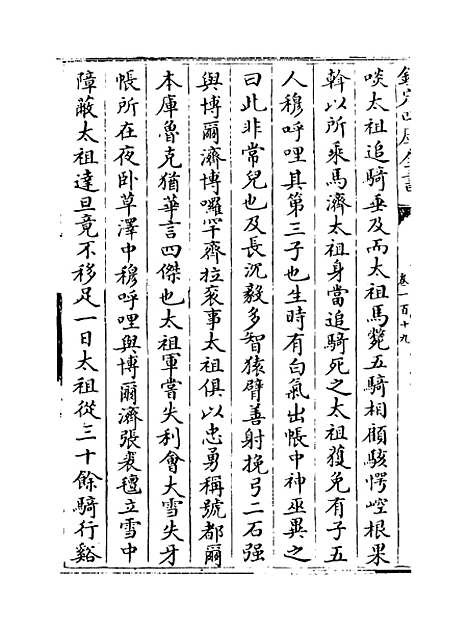 欽定四庫全書
卷一百十九
啖太祖追騎垂及而太祖馬斃五騎相顧駭愕崆根果
斡以所乘馬濟太祖身當追騎死之太祖獲免有子五
人穆呼哩其第三子也生時有白氣出帳中神巫異之
曰此非常兒也及長沉毅多智猿臂善射挽弓二石强
與博爾濟博囉罕齊拉衮事太祖俱以忠勇稱號都爾
本庫魯克猶華言四傑也太祖軍嘗失利會大雪失牙
帳所在夜卧草澤中穆呼哩與博爾濟張裘氊立雪中
障蔽太祖達旦竟不移足一日太祖從三十餘騎行谿